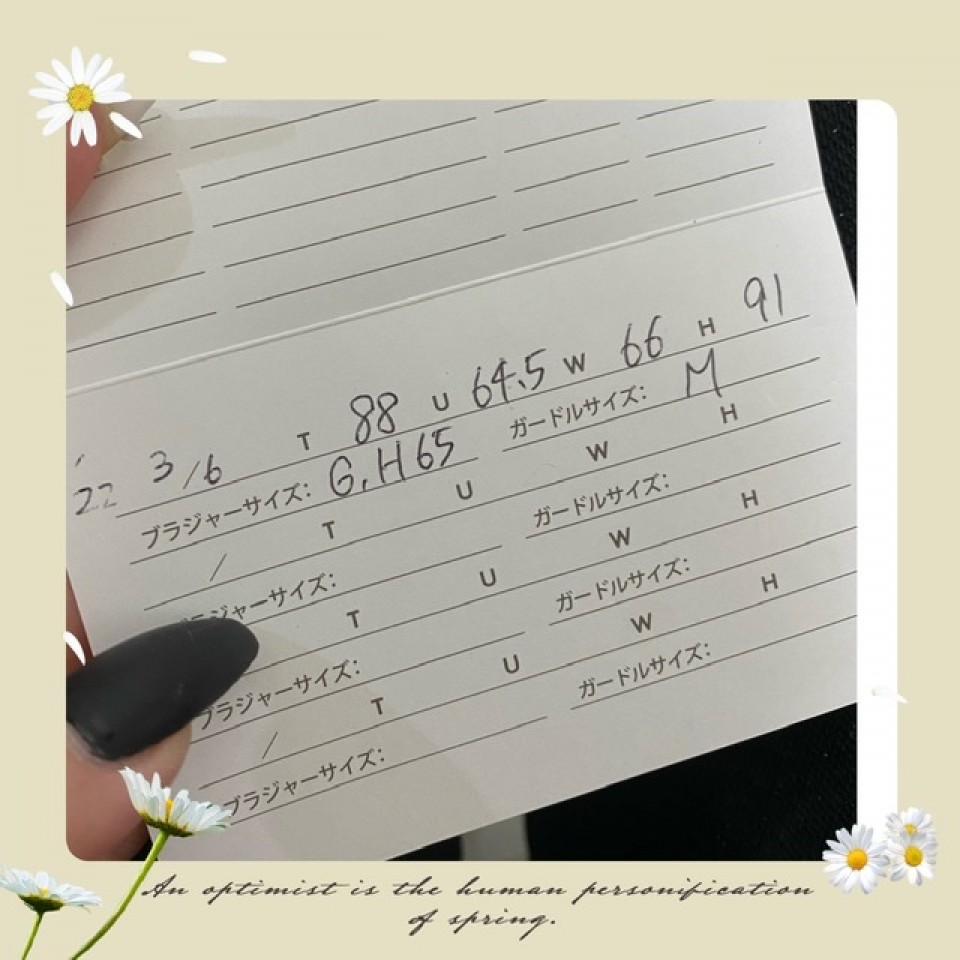 '22 3/6 T 88 U 64.5 W 66 H 91
ブラジャーサイズ: G.H65 ガードルサイズ: M
/ T U W H
ブラジャーサイズ: ガードルサイズ:
T U W H
ブラジャーサイズ: ガードルサイズ:
/ T U W H
ブラジャーサイズ: ガードルサイズ:
An optimist is the human personification
of spring.